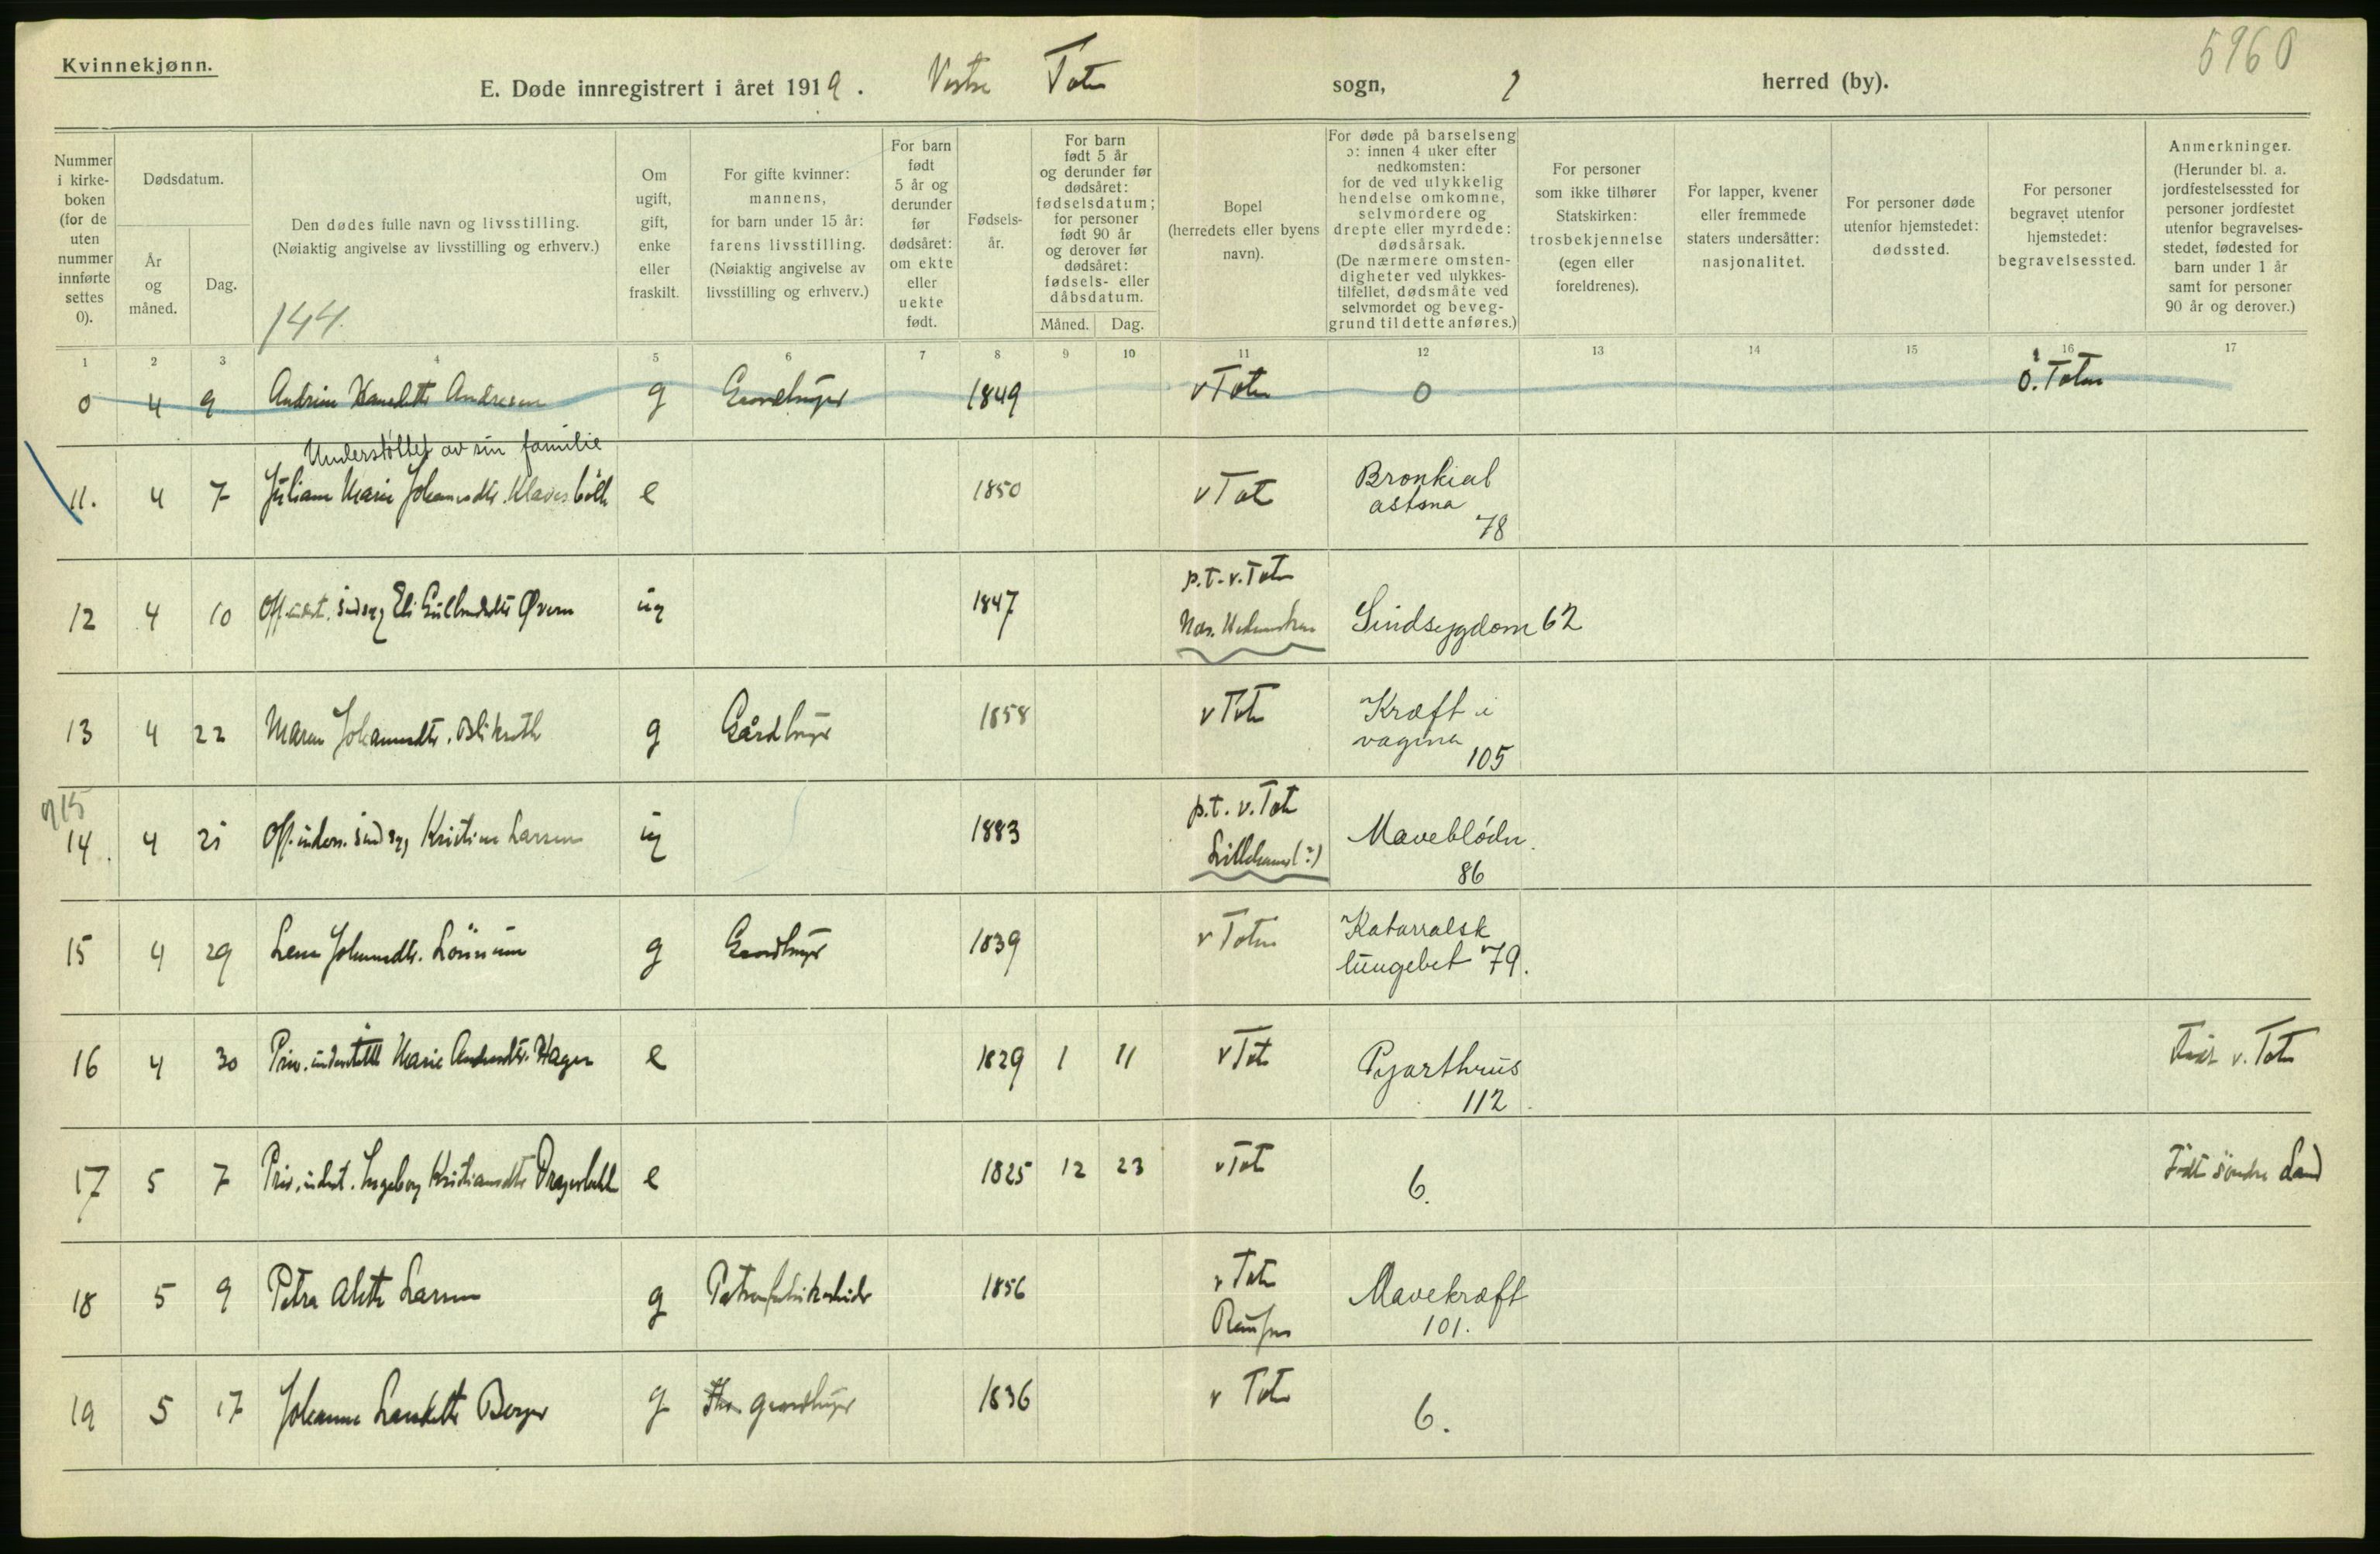 Kvinnekjønn.
5960
E. Døde innregistrert i året 1919. Vestre Toten sogn, herred (by).
Nummer i kirkeboken (for de uten nummer innførte settes 0).
Dødsdatum.
År og måned.
Dag.
Den dødes fulle navn og livsstilling.
(Nøiaktig angivelse av livsstilling og erhverv.)
144.
Om ugift, gift, enke eller fraskilt.
For gifte kvinner: mannens, for barn under 15 år: farens livsstilling. (Nøiaktig angivelse av livsstilling og erhverv.)
For barn født 5 år og derunder før dødsåret: om ekte eller uekte født.
Fødselsår.
For barn født 5 år og derunder før dødsåret: fødselsdatum; for personer født 90 år og derover før dødsåret: fødsels- eller dåbsdatum.
Måned.
Dag.
Bopel (herredets eller byens navn).
For døde på barselseng ɔ: innen 4 uker efter nedkomsten: for de ved ulykkelig hendelse omkomne, selvmordere og drepte eller myrdede: dødsårsak. (De nærmere omstendigheter ved ulykkestilfellet, dødsmåte ved selvmordet og beveggrund til dette anføres.)
For personer som ikke tilhører Statskirken: trosbekjennelse (egen eller foreldrenes).
For lapper, kvener eller fremmede staters undersåtter: nasjonalitet.
For personer døde utenfor hjemstedet: dødssted.
For personer begravet utenfor hjemstedet: begravelsessted.
Anmerkninger. (Herunder bl. a. jordfestelsessted for personer jordfestet utenfor begravelsesstedet, fødested for barn under 1 år samt for personer 90 år og derover.)
1 2 3 4 5 6 7 8 9 10 11 12 13 14 15 16 17
0 4 9 Andrine Andresen g 1849 v Toten 0 Ö. Toten
Understöttet av sin familie
11. 4 7 Juliane Marie Johannesdtr. e 1850 v Toten Bronkial
astma
78
p.t. v. Toten
12 4 10 Eli ug 1847 Sindsygdom 62
13 4 22 Maren Johannesdtr. g Gårdbruger 1858 v Toten Kræft i
vagina
105
915
p.t. v. Toten
14. 4 25 Kristine Larsen ug 1883 Lillehamer (?) Maveblödn.
86
15 4 29 Lena g 1839 v Toten Katarralsk
lungebet 79.
16 4 30 Marie Hagen e 1829 1 11 v Toten Pyarthrus
112
Född v. Toten
17 5 7 Ingeborg Kristiansdtr. e 1825 12 23 v Toten 6. Födt söndre Land
18 5 9 Petra Alette Larsen g 1856 v Toten
Raufoss
Mavekræft
101.
19 5 17 Johanne Berger g 1836 v Toten 6.